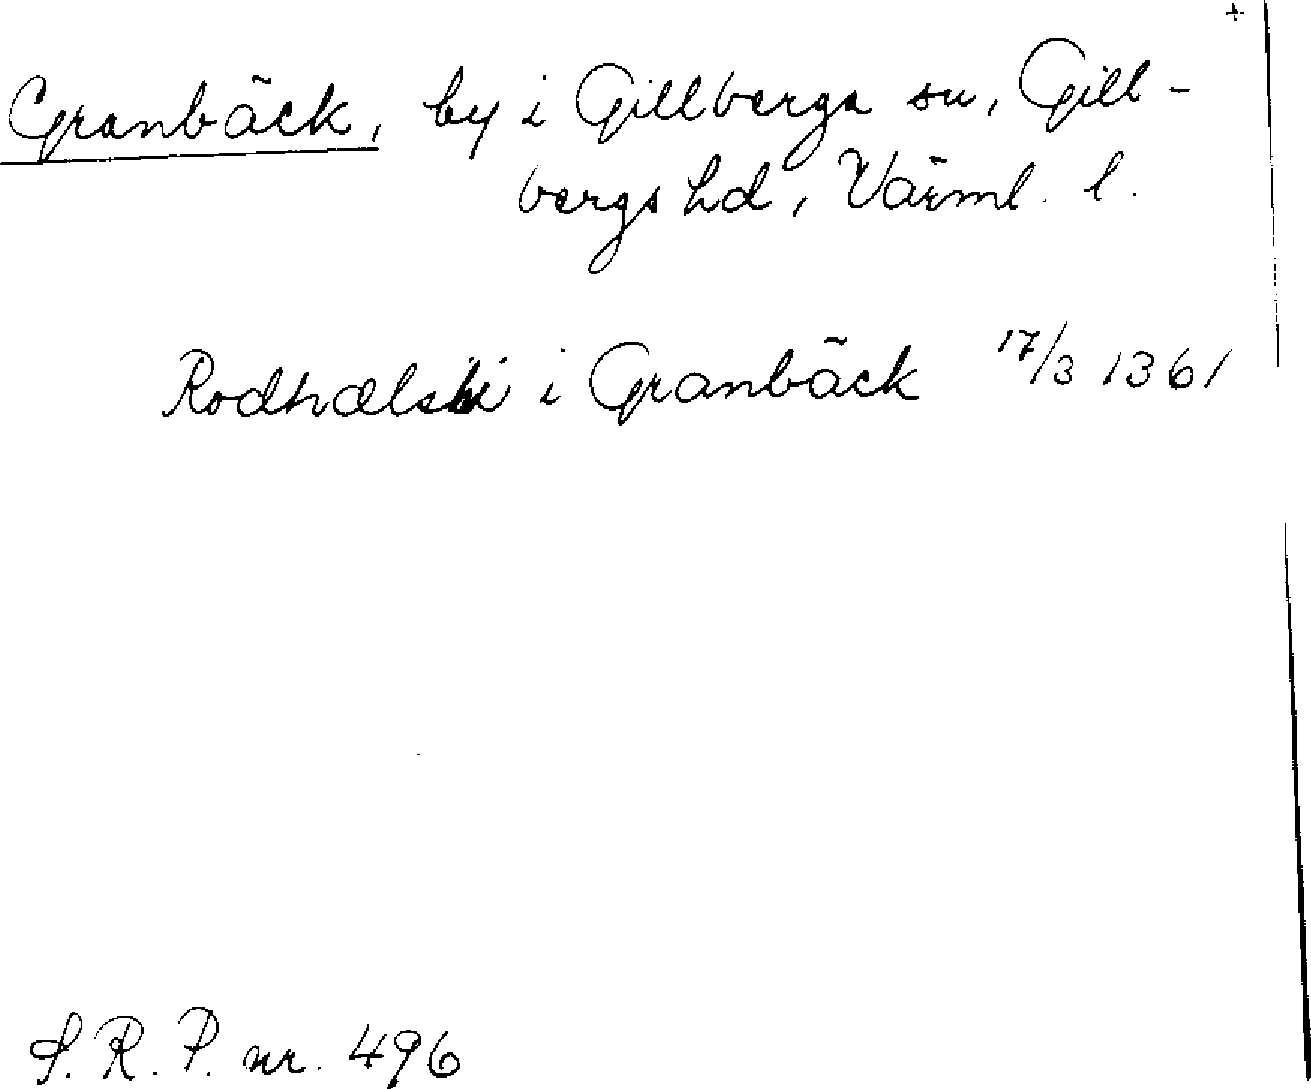 +
Granbäck, by i Gillberga sn, Gill-
bergs hd, Värml. l.
i Granbäck 17/3 1361
S. R. P. nr. 496